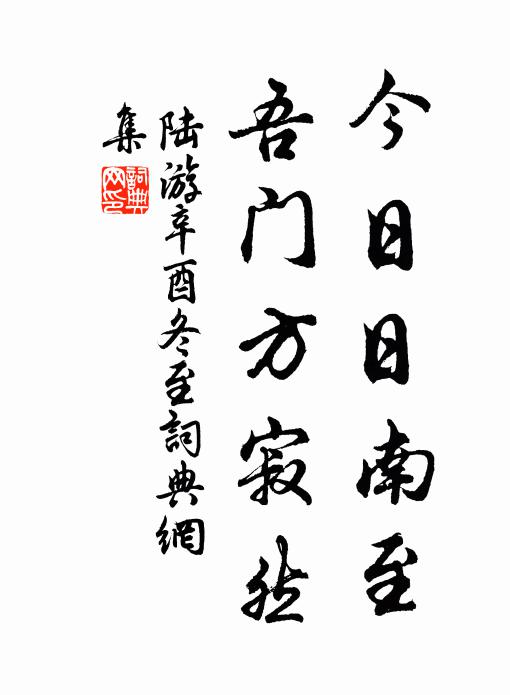 今日日南至
吾门方寂然
陆游辛酉冬至詞典網
集
詞典网印